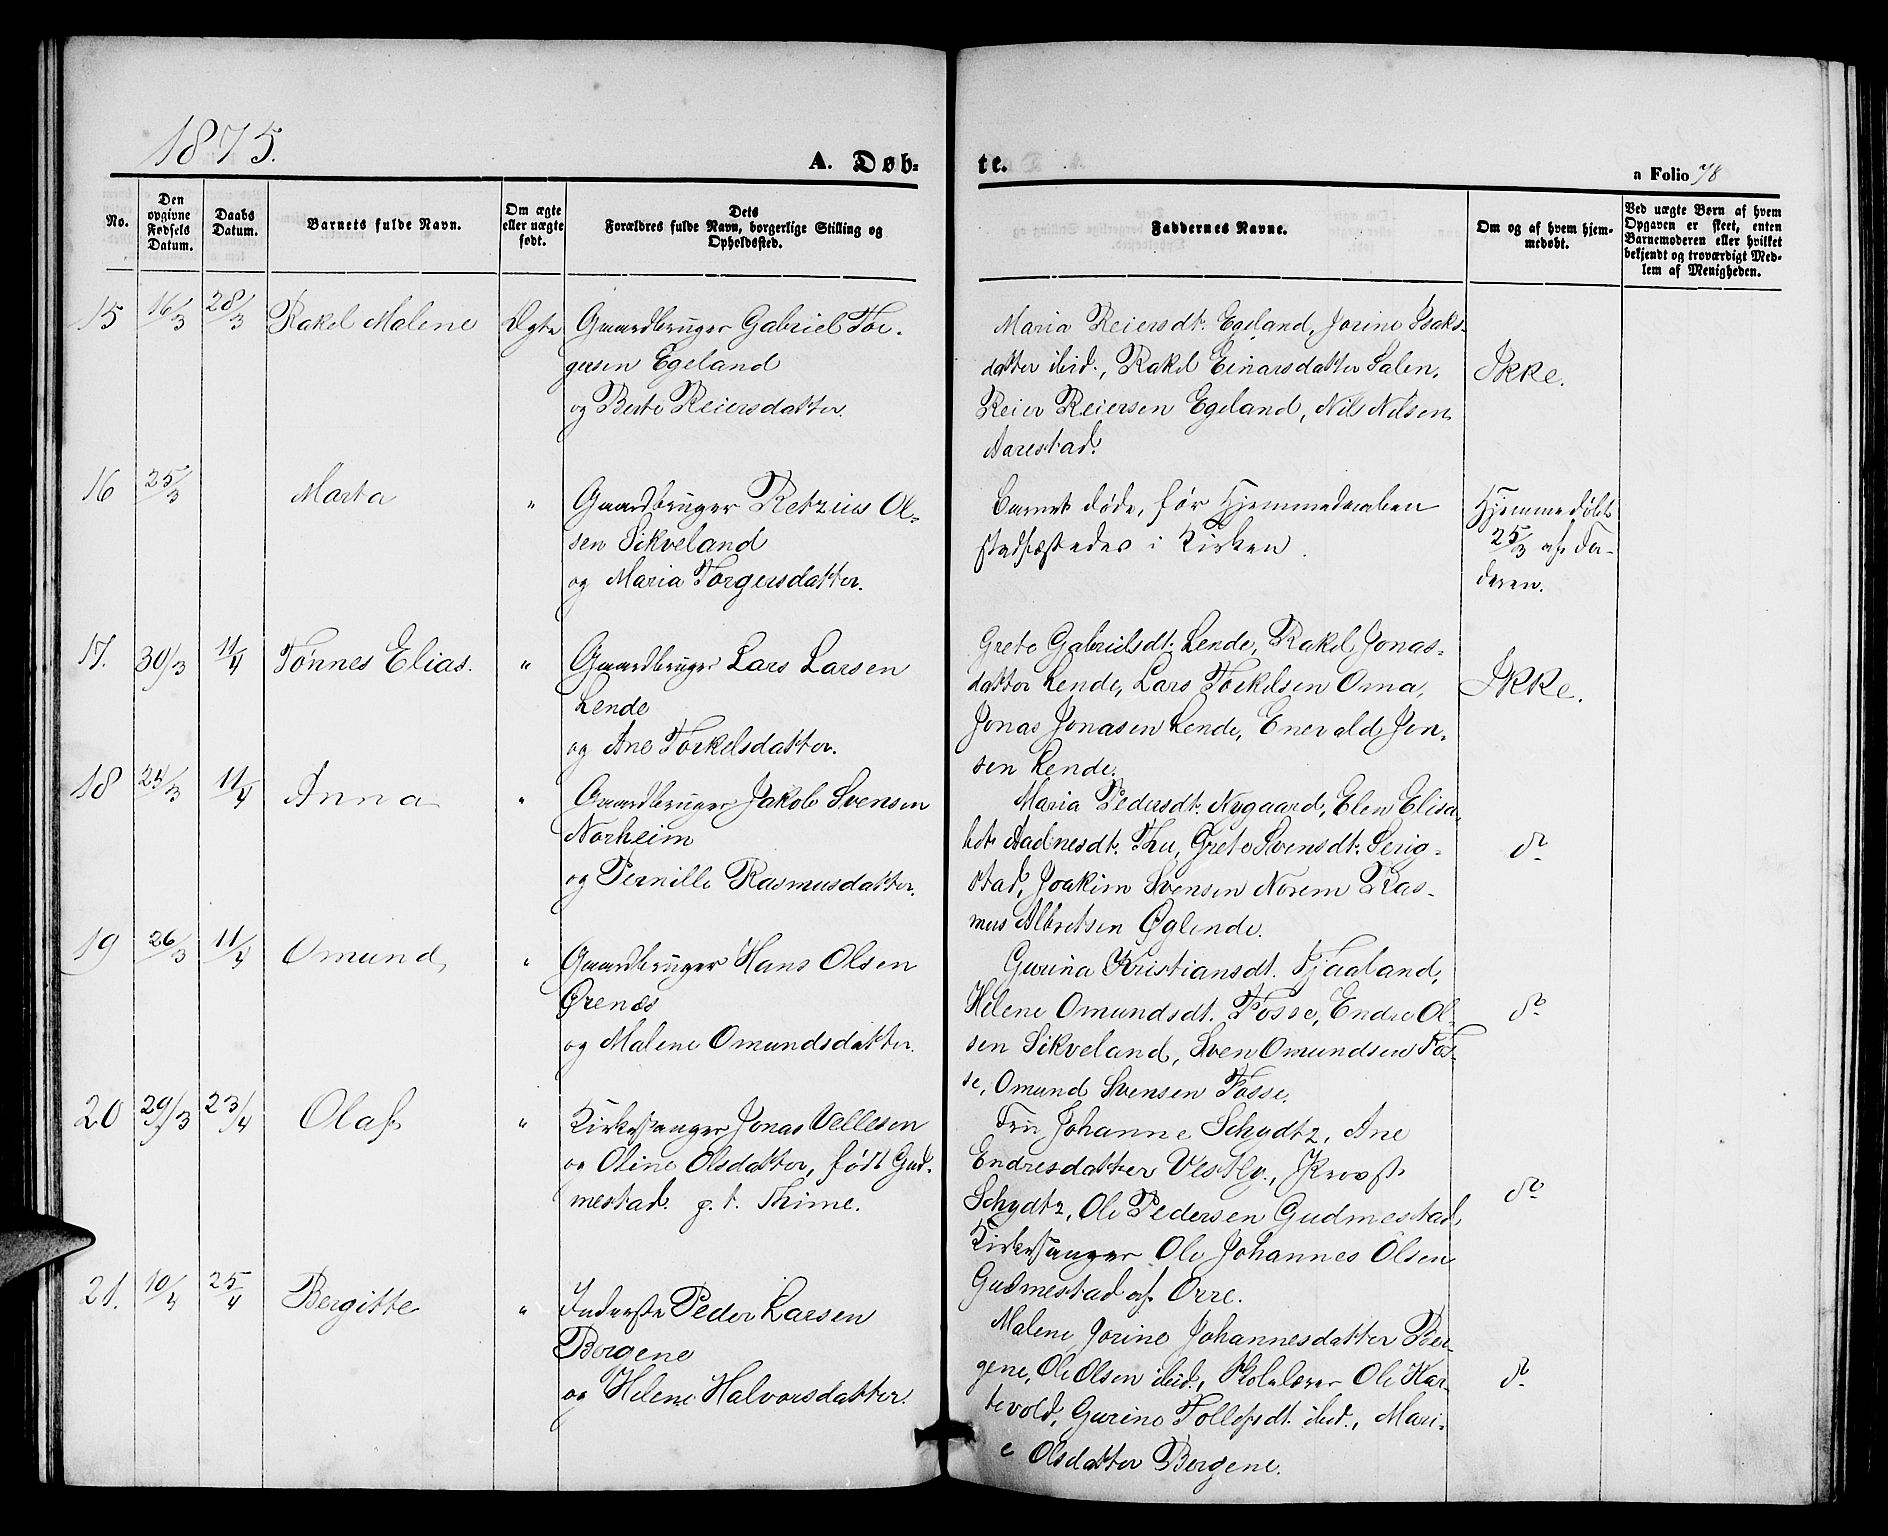 1875.
A. Døb-
te.
a Folio 78
No.
Den
opgivne
Fødsels
Datum.
Daabs
Datum.
Barnets fulde Navn.
Om ægte
eller uægte
født.
Dets
Forældres fulde Navn, borgerlige Stilling og
Opholdssted.
Faddernes Navne.
Om og af hvem hjem-
medøbt.
Ved uægte Børn af hvem
Opgaven er skeet, enten
Barnemoderen eller hvilket
bekjendt og troværdigt Med-
lem af Menigheden.
15 16/3 28/3 Rakel Malene Ægte Gaardbruger Gabriel Tor-
gersen Egeland
og Berte Reiersdatter.
Maria Reiersdt. Egeland, Jorine Isaks-
datter ibid., Rakel Einarsdatter Salen,
Reier Reiersen Egeland, Nils Nilsen
Aarestad.
Ikke.
16 25/3 Marta " Gaardbruger Retzius Ol-
sen Sikveland
og Maria Torgersdatter.
Barnet døde, før Hjemmedaaben
stadfæstedes i Kirken.
Hjemmedøbt
25/3 af Fa-
deren.
17. 30/3 11/4 Tønnes Elias. " Gaardbruger Lars Larsen
Lende
og Ane Torkelsdatter.
Grete Gabrielsdt. Lende, Rakel Jonas-
datter Lende, Lars Torkelsen Oma,
Jonas Jonasen Lende, Enevald Jon-
sen Lende.
Ikke.
18 24/3 11/4 Anna " Gaardbruger Jakob Svensen
Norheim
og Pernille Rasmusdatter.
Maria Pedersdt. Nygaard, Elen Elisa-
bet Aadnesdt. Thu, Grete Svensdt. Serig-
stad, Joakim Svensen Norem Ras-
mus Albretsen Øglende.
do
19 26/3 11/4 Omund, " Gaardbruger Hans Olsen
Ørenæs
og Malene Omundsdatter.
Gurina Kristiansdt. Tjaaland,
Helene Omundsdt. Fosse, Endre Ol-
sen Sikveland, Sven Omundsen Fos-
se, Omund Svensen Fosse.
do
20 29/3 23/4 Olaf " Kirkesanger Jonas Vellesen
og Oline Olsdatter, født Gud-
mestad. p. t. Thime.
Fru Johanne Schydtz, Ane
Endresdatter Vestly, Provst
Schydtz, Ole Pedersen Gudmestad,
Kirkesanger Ole Johannes Olsen
Gudmestad af Orre.
do
21. 10/4 25/4 Bergitte " Inderste Peder Larsen
Bergene
og Helene Halvorsdatter.
Malene Jorine Johannesdatter Ber-
gene, Ole Olsen ibid., Skolelærer Ole Har-
tevold, Gurine Tollefsdt. ibid., Mari-
e Olsdatter Bergene.
do